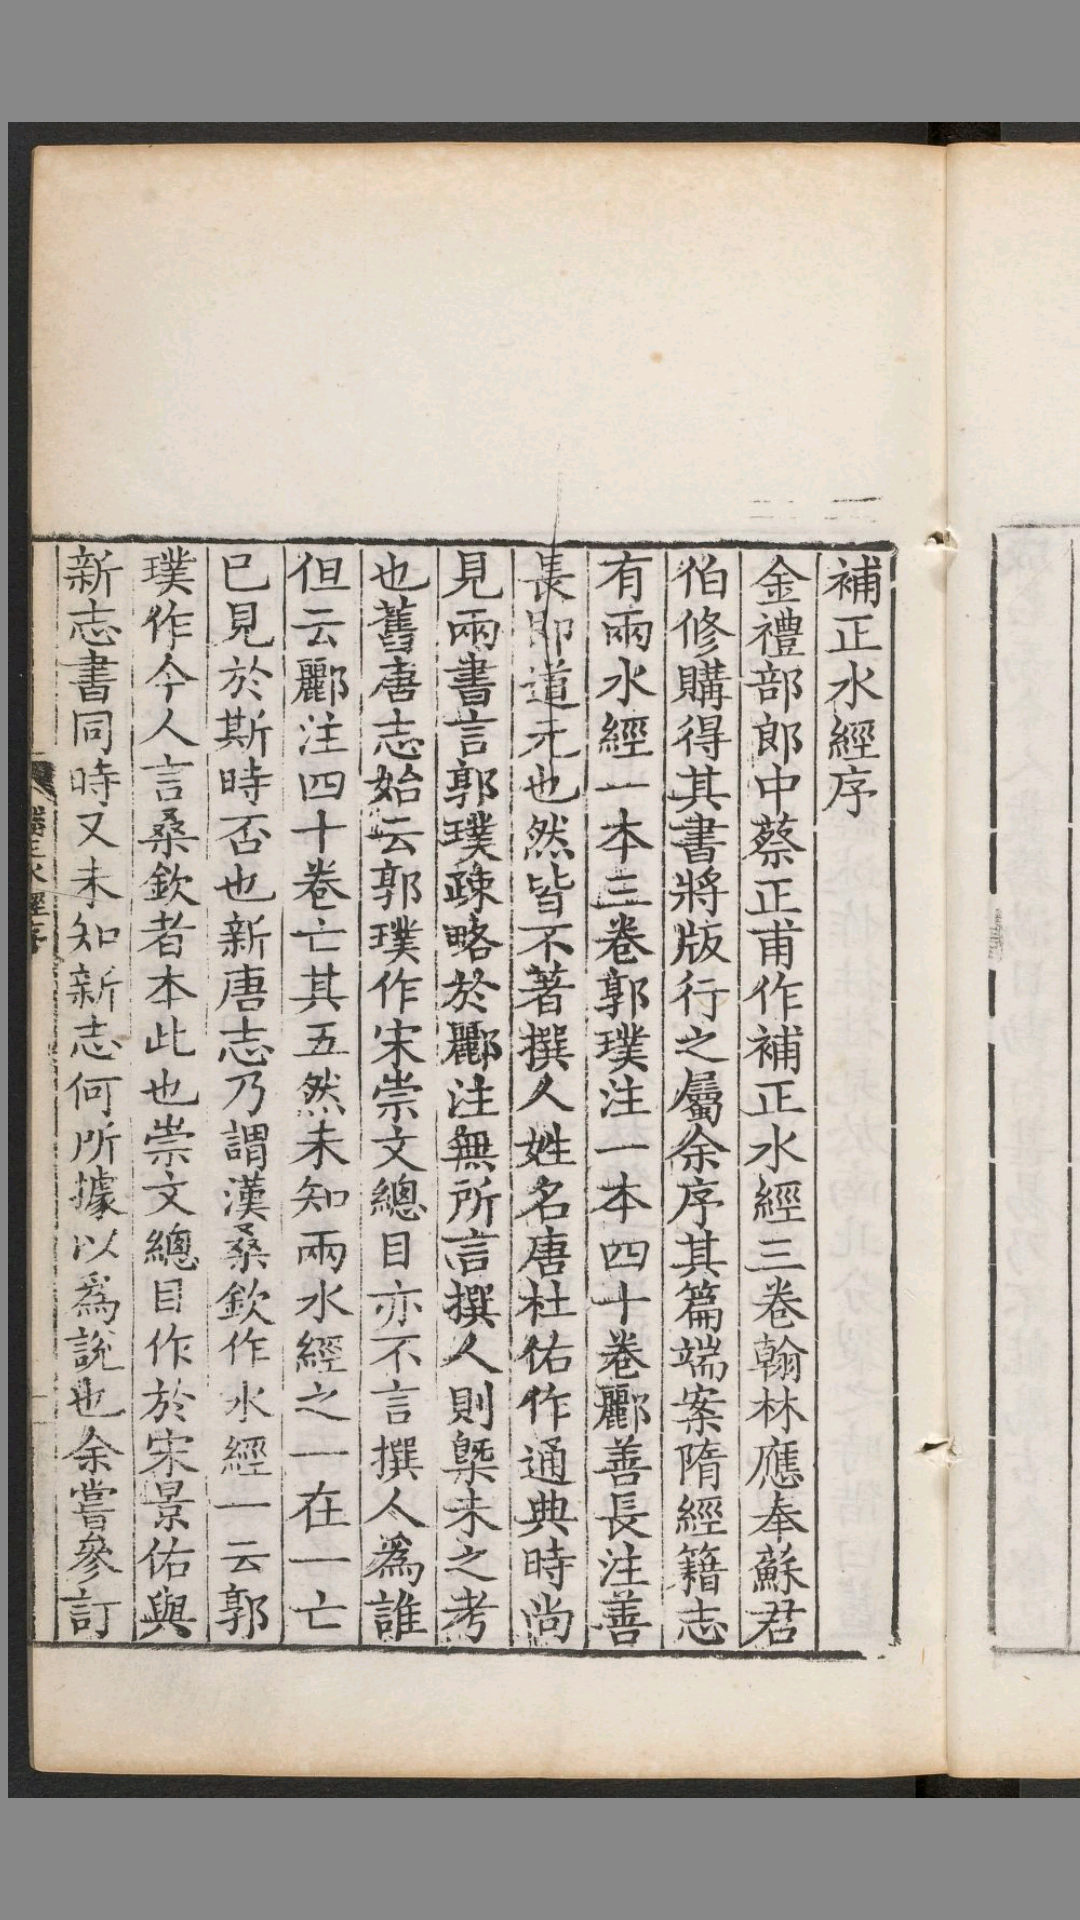 補正水經序
金禮部郎中蔡正甫作補正水經三卷翰林應奉蘇君
伯修購得其書將版行之屬余序其篇端案隋經籍志
有兩水經一本三卷郭璞注一本四十卷酈善長注善
長即道元也然皆不著撰人姓名唐杜佑作通典時尚
見兩書言郭璞疎略於酈注無所言撰人則槩未之考
也舊唐志始云郭璞作宋崇文總目亦不言撰人為誰
但云酈注四十卷亡其五然未知兩水經之一在一亡
已見於斯時否也新唐志乃謂漢桑欽作水經一云郭
璞作今人言桑欽者本此也崇文總目作於宋景佑與
新志書同時又未知新志何所據以為說也余嘗參訂